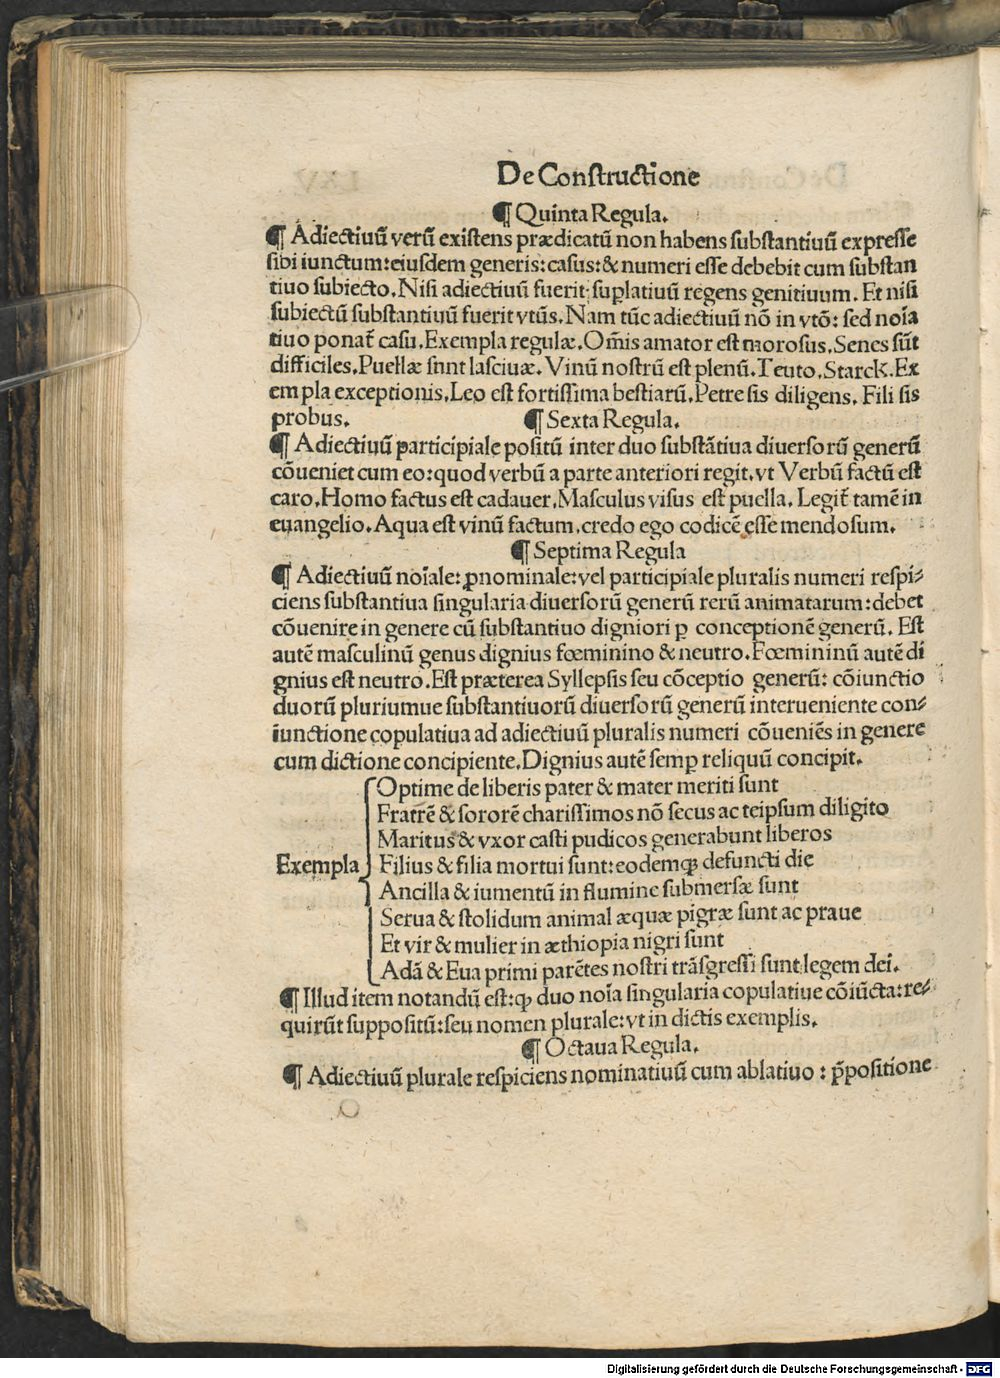 De Constructione
¶ Quinta Regula.
¶ Adiectiuū verū existens prædicatū non habens substantiuū expresse
sibi iunctum: eiusdem generis: casus: & numeri esse debebit cum substan
tiuo subiecto. Nisi adiectiuū fuerit suplatiuū regens genitiuum. Et nisi
subiectū substantiuū fuerit vtūs. Nam tūc adiectiuū nō in vtō: sed noīa
tiuo ponat̄ casu. Exempla regulæ. Om̄is amator est morosus. Senes sūt
difficiles. Puellæ sunt lasciuæ. Vinū nostrū est plenū. Teuto. Starck. Ex
empla exceptionis. Leo est fortissima bestiarū. Petre sis diligens. Fili sis
probus. ¶ Sexta Regula.
¶ Adiectiuū participiale positū inter duo substātiua diuersorū generū
cōueniet cum eo: quod verbū a parte anteriori regit. vt Verbū factū est
caro. Homo factus est cadauer. Masculus visus est puella. Legit̄ tamē in
euangelio. Aqua est vinū factum. credo ego codicē esse mendosum.
¶ Septima Regula
¶ Adiectiuū noīale: ꝓnominale: vel participiale pluralis numeri respi⸗
ciens substantiua singularia diuersorū generū rerū animatarum: debet
cōuenire in genere cū substantiuo digniori ꝑ conceptionē generū. Est
autē masculinū genus dignius fœminino & neutro. Fœmininū autē di
gnius est neutro. Est præterea Syllepsis seu cōceptio generū: cōiunctio
duorū pluriumue substantiuorū diuersorū generū interueniente con⸗
iunctione copulatiua ad adiectiuū pluralis numeri cōueniēs in genere
cum dictione concipiente. Dignius autē semꝑ reliquū concipit.
Optime de liberis pater & mater meriti sunt
Fratrē & sororē charissimos nō secus ac teipsum diligito
Maritus & vxor casti pudicos generabunt liberos
Exempla Filius & filia mortui sunt: eodemqꝫ defuncti die
Ancilla & iumentū in flumine submersæ sunt
Serua & stolidum animal æquæ pigræ sunt ac praue
Et vir & mulier in æthiopia nigri sunt
Adā & Eua primi parētes nostri trāsgressi sunt legem dei.
¶ Illud item notandū est: ꝙ duo noīa singularia copulatiue cōiūcta: re⸗
quirūt suppositū: seu nomen plurale: vt in dictis exemplis.
¶ Octaua Regula.
¶ Adiectiuū plurale respiciens nominatiuū cum ablatiuo: p̄positione
Digitalisierung gefördert durch die Deutsche Forschungsgemeinschaft - DFG